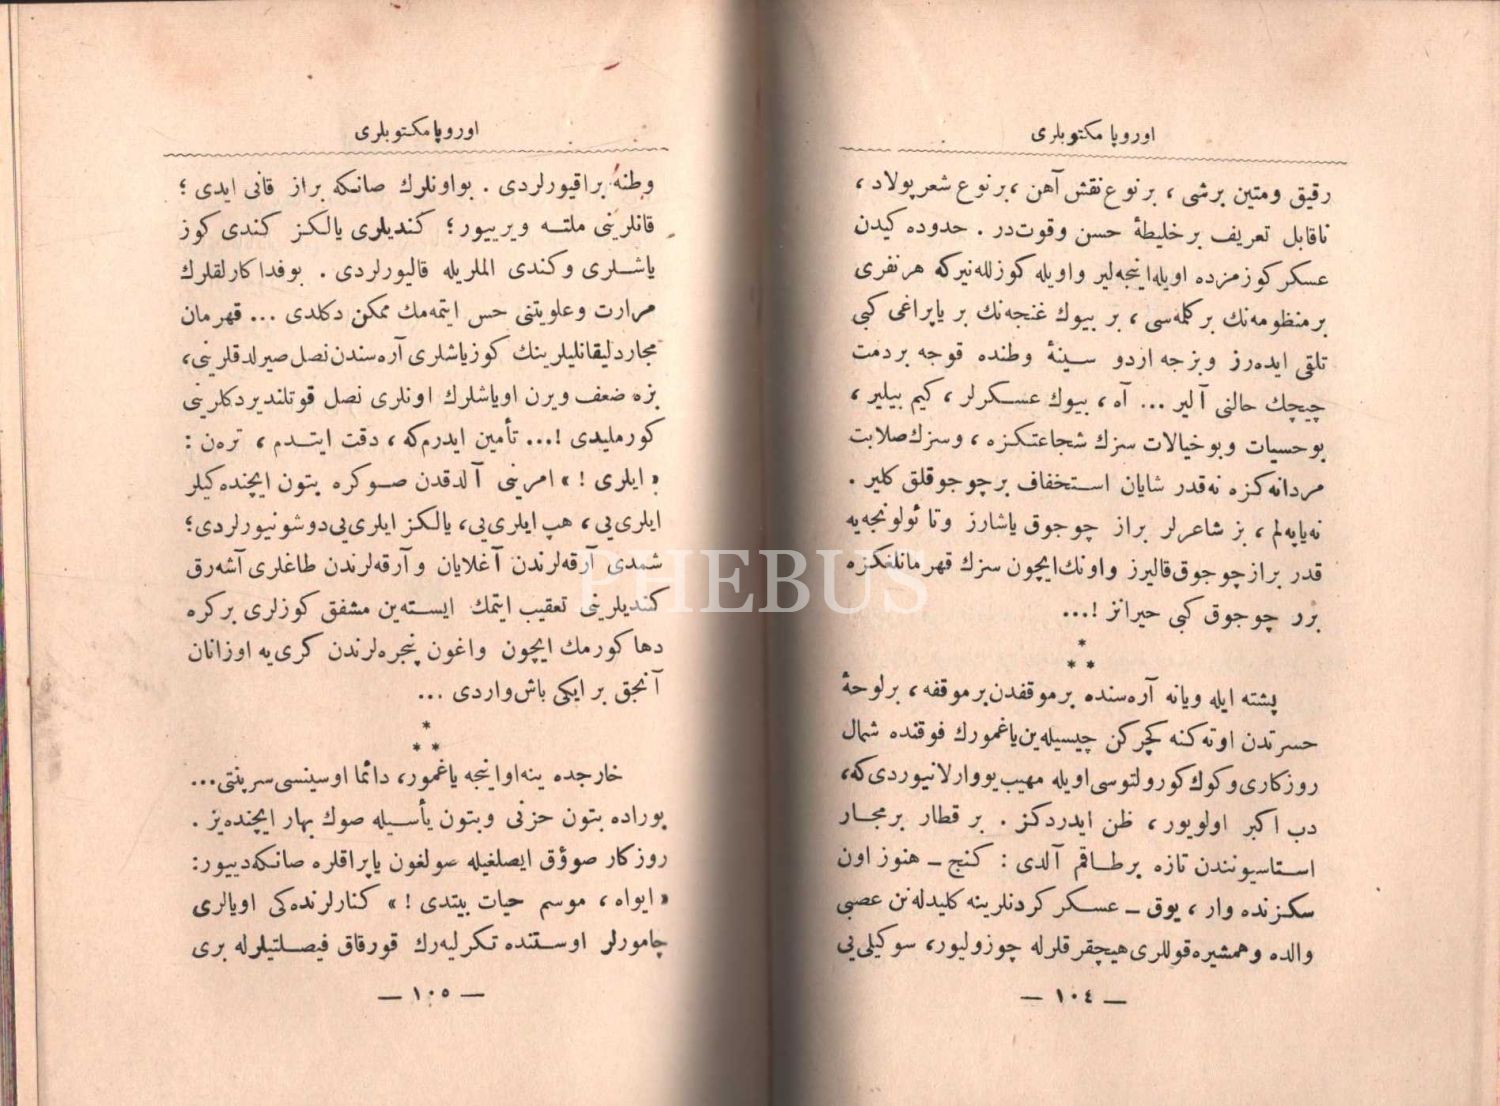 اوروپا مكتوبلری
رقيق ومتين برشی ، برنوع نقش آهن ، برنوع شعر پولاد ،
ناقابل تعريف برخليطۀ حسن وقوت‌در . حدوده كيدن
عسكر كوزمزده اويله اينجه‌لير و اويله كوزللە‌نيركه هرنفری
برمنظومه‌نك بركلمه‌سی ، بر بيوك غنجه‌نك بر ياپراغی كبی
تلقی ايده‌رز وبزجه اردو سينۀ وطنده قوجه بردمت
چيچك حالنی آلير ... آه ، بيوك عسكرلر ، كيم بيلير ،
بوحسيات وبوخيالات سزك شجاعتكزه ، وسزك صلابت
مردانه‌كزه نه‌قدر شايان استخفاف برچوجوقلق كلير .
نه‌ياپه‌لم ، بز شاعرلر براز چوجوق ياشارز وتا ئولونجه‌يه
قدر براز چوجوق قاليرز واونك ايچون سزك قهرمانلغكزه
برر چوجوق كبی حيرانز !...
*
* *
پشته ايله ويانه آره‌سنده برموقفدن برموقفه ، برلوحۀ
حسرتدن اوته‌كنه كچركن چيسيله‌ين ياغمورك فوقنده شمال
روزكاری وكوك كورولتوسی اويله مهيب يووارلانيوردی‌كه،
دب اكبر اولويور ، ظن ايدردكز . بر قطار برمجار
استاسيونندن تازه برطاقم آلدی : كنج ـ هنوز اون
سكزنده وار ، يوق ـ عسكر كردنلرينه كليدله‌نن عصبی
والده وهمشيره قوللری هيچقرقلرله چوزوليور، سوكيلی‌يی
— ١٠٤ —
اوروپا مكتوبلری
وطنه براقيورلردی . بواونلرك صانكه براز قانی ايدی ؛
قانلرينی ملته ويرييور ؛ كنديلری يالكز كندی كوز
ياشلری وكندی الملريله قاليورلردی . بوفداكارلقلرك
مرارت وعلويتنی حس ايتمه‌مك ممكن دكلدی ... قهرمان
مجاردليقانليلرينك كوزياشلری آره‌سندن نصل صيرلدقلرينی،
بزه ضعف ويرن اوياشلرك اونلری نصل قوتلنديردكلرينی
كورمليدی !... تأمين ايدرم‌كه ، دقت ايتدم ، ترەن :
« ايلری ! » امرينی آلدقدن صوكره بتون ايچنده‌كيلر
ايلری‌يی ، هپ ايلری‌يی ، يالكز ايلری‌يی دوشونيورلردی؛
شمدی آرقه‌لرندن آغلايان و آرقه‌لرندن طاغلری آشه‌رق
كنديلرينی تعقيب ايتمك ايسته‌ين مشفق كوزلری بركره
دها كورمك ايچون واغون پنجره‌لرندن كری‌يه اوزانان
آنجق بر ايكی باش واردی ...
*
* *
خارجده ينه اواينجه ياغمور، دائما اوسينسی سرپنتی...
بوراده بتون حزنی وبتون يأسيله صوك بهار ايچنده‌يز .
روزكار صوؤق ايصلغيله صولغون ياپراقلره صانكه دييور:
« ايواه ، موسم حيات بيتدی ! » كنارلرنده‌كی اويالری
چامورلر اوستنده تكرليه‌رك قورقاق فيصلتيلرله بری
— ١٠٥ —
PHEBUS